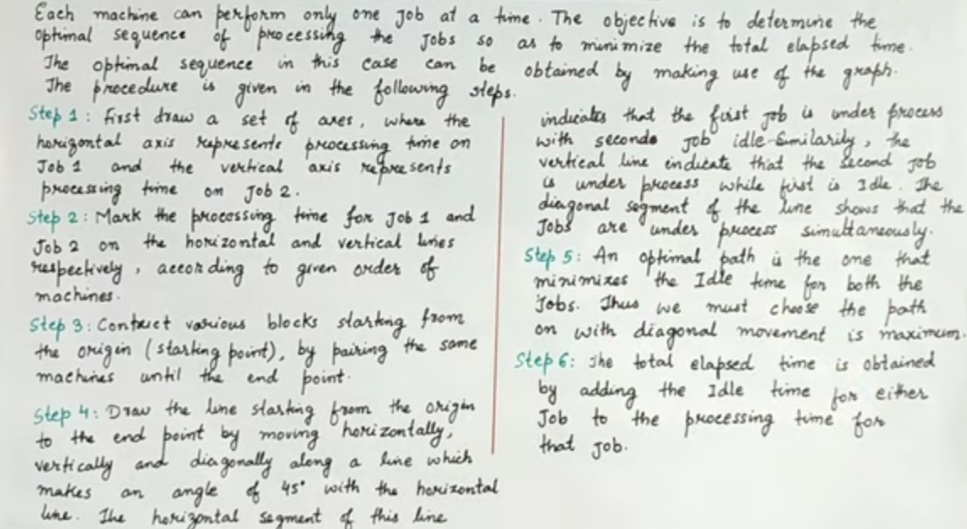 Each machine can perform only one Job at a time. The objective is to determine the
optimal sequence of processing the Jobs so as to minimize the total elapsed time.
The optimal sequence in this case can be obtained by making use of the graph.
The procedure is given in the following steps.
Step 1: First draw a set of axes, where the
horizontal axis represents processing time on
Job 1 and the vertical axis represents
processing time on Job 2.
Step 2: Mark the processing time for Job 1 and
Job 2 on the horizontal and vertical lines
respectively, according to given order of
machines.
Step 3: Contruct various blocks starting from
the origin (starting point), by pairing the same
machines until the end point.
Step 4: Draw the line starting from the origin
to the end point by moving horizontally,
vertically and diagonally along a line which
makes an angle of 45° with the horizontal
line. The horizontal segment of this line
indicates that the first job is under process
with seconds job idle. Similarily, the
vertical line indicate that the second job
is under process while first is Idle. The
diagonal segment of the line shows that the
Jobs are under process simultaneously.
Step 5: An optimal path is the one that
minimizes the Idle time for both the
Jobs. Thus we must choose the path
on with diagonal movement is maximum.
Step 6: The total elapsed time is obtained
by adding the Idle time for either
Job to the processing time for
that Job.